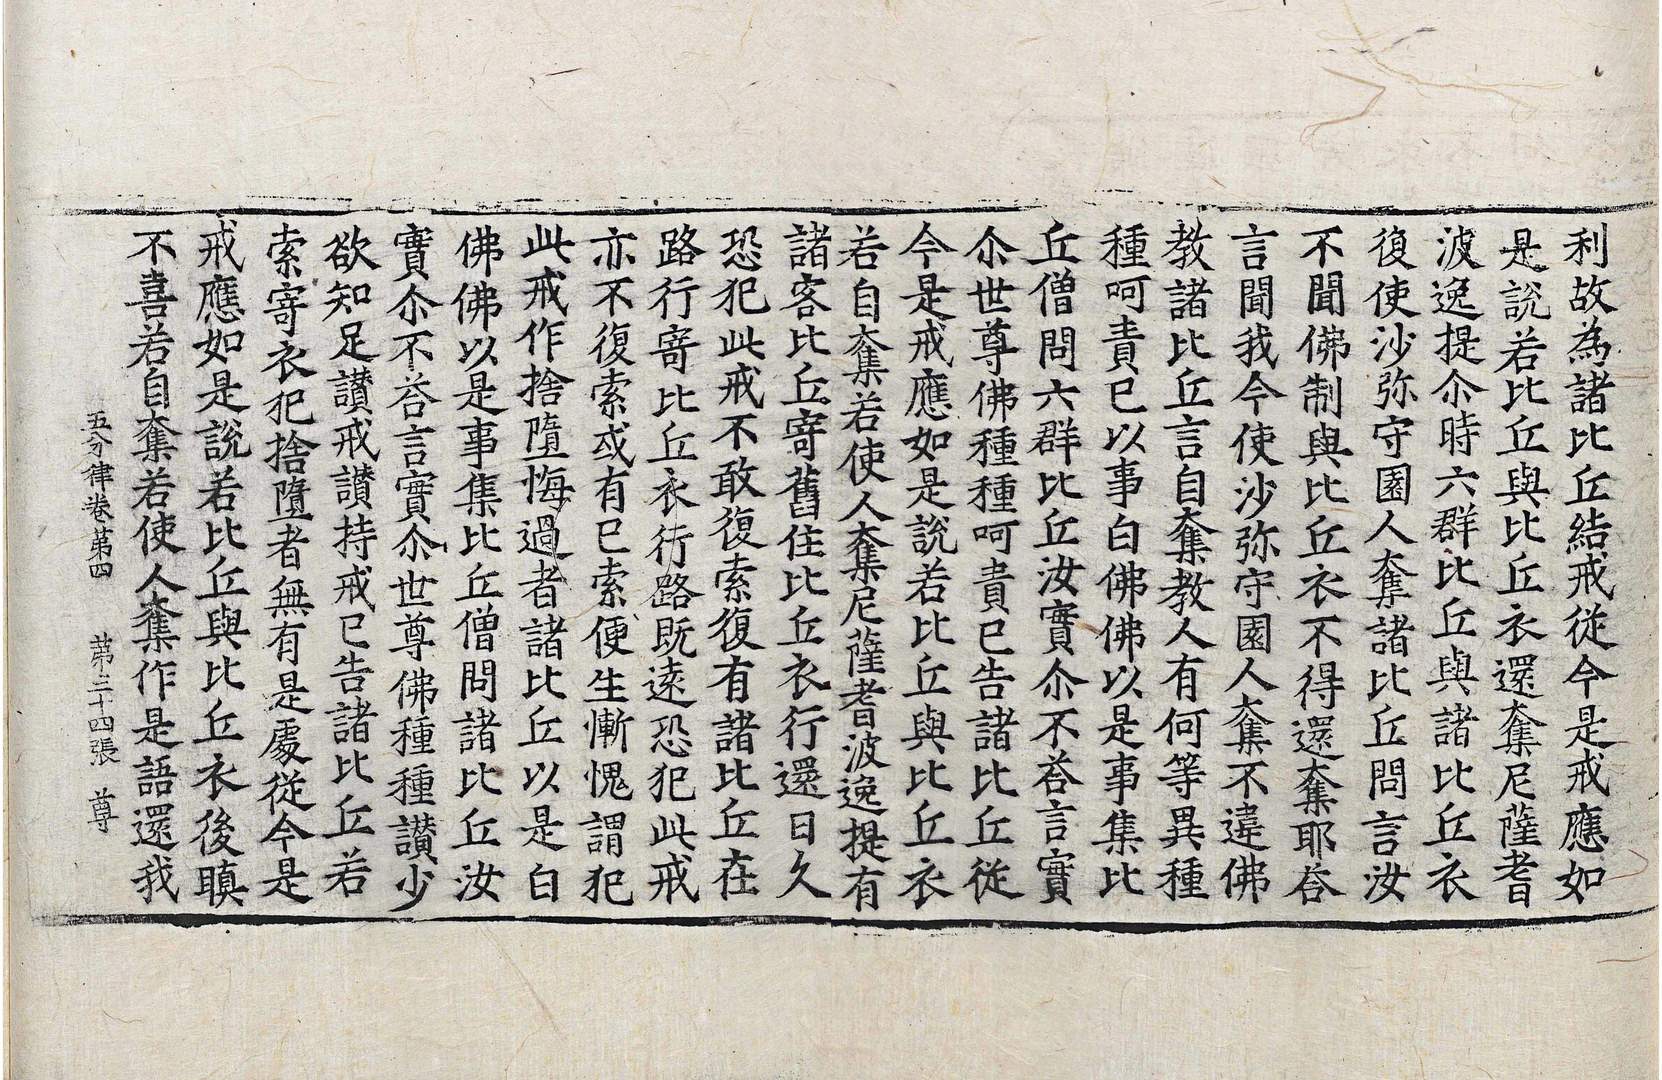 利故為諸比丘結戒從今是戒應如
是說若比丘與比丘衣還奪尼薩耆
波逸提尒時六群比丘與諸比丘衣
復使沙弥守園人奪諸比丘問言汝
不聞佛制與比丘衣不得還奪耶荅
言聞我今使沙弥守園人奪不違佛
教諸比丘言自奪教人有何等異種
種呵責已以事白佛佛以是事集比
丘僧問六群比丘汝實尒不荅言實
尒世尊佛種種呵責已告諸比丘從
今是戒應如是說若比丘與比丘衣
若自奪若使人奪尼薩耆波逸提有
諸客比丘寄舊住比丘衣行還日久
恐犯此戒不敢復索復有諸比丘在
路行寄比丘衣行路既遠恐犯此戒
亦不復索或有已索便生慚愧謂犯
此戒作捨墮悔過者諸比丘以是白
佛佛以是事集比丘僧問諸比丘汝
實尒不荅言實尒世尊佛種種讃少
欲知足讃戒讃持戒已告諸比丘若
索寄衣犯捨墮者無有是處從今是
戒應如是說若比丘與比丘衣後瞋
不喜若自奪若使人奪作是語還我
五分律卷第四 第三十四張 尊